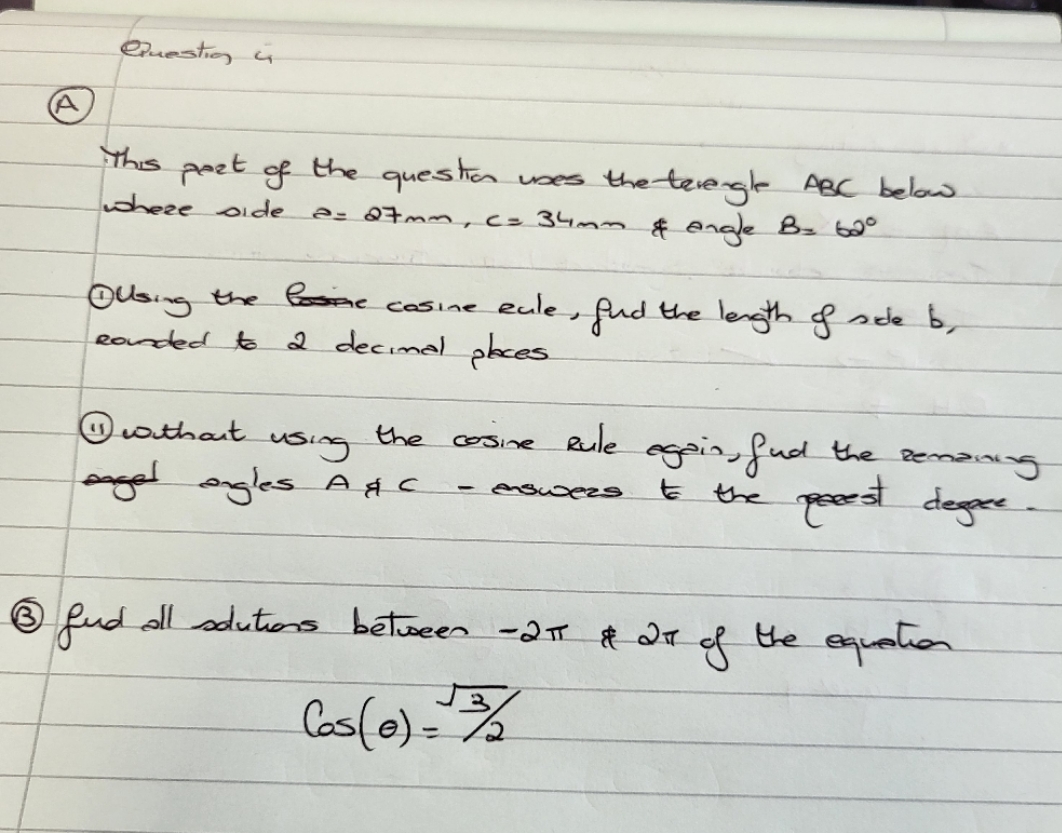 Question 4
A
This part of the question uses the triangle ABC below
where side a = 27mm, c = 34mm & angle B = 62°
(i) Using the cosine rule, find the length of side b,
rounded to 2 decimal places
(ii) without using the cosine Rule again, find the remaining
angles A & C - answers to the degree.
B find all solutions between -2π & 2π of the equation
Cos(θ) = √3/2